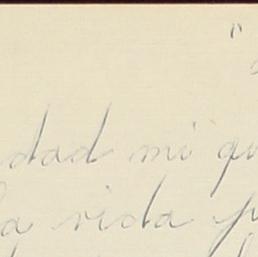 "
dad mi qu
la vida p